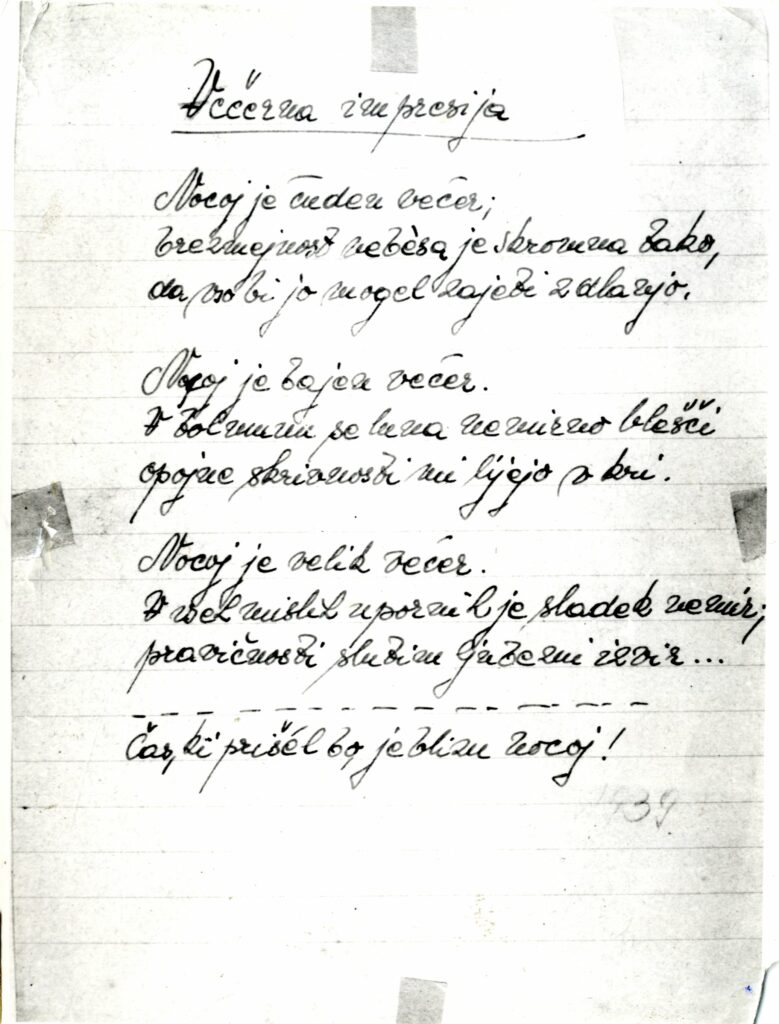 Večerna impresija
Nocoj je čuden večer;
brezmejnost nebèsa je skromna tako,
da vso bi jo mogel zajeti z dlanjo.
Nocoj je bajen večer.
V tolmunu se luna nemirno blešči
opojne skrivnosti mi lijejo v kri.
Nocoj je velik večer.
V vseh mislih upornih je sladek nemir;
pravičnosti slutim ljubezni izvir...
Čas, ki prišèl bo, je blizu nocoj!
1939